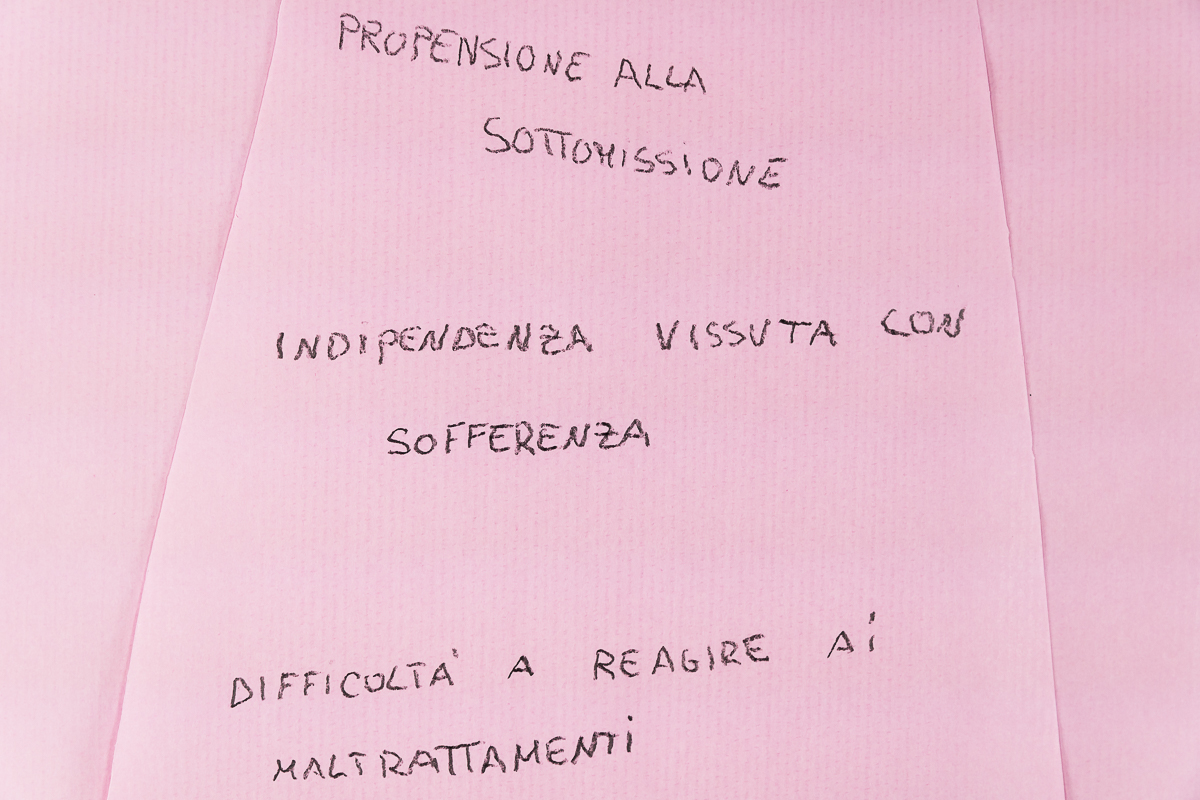 PROPENSIONE ALLA
SOTTOMISSIONE
INDIPENDENZA VISSUTA CON
SOFFERENZA
DIFFICOLTA' A REAGIRE AI
MALTRATTAMENTI